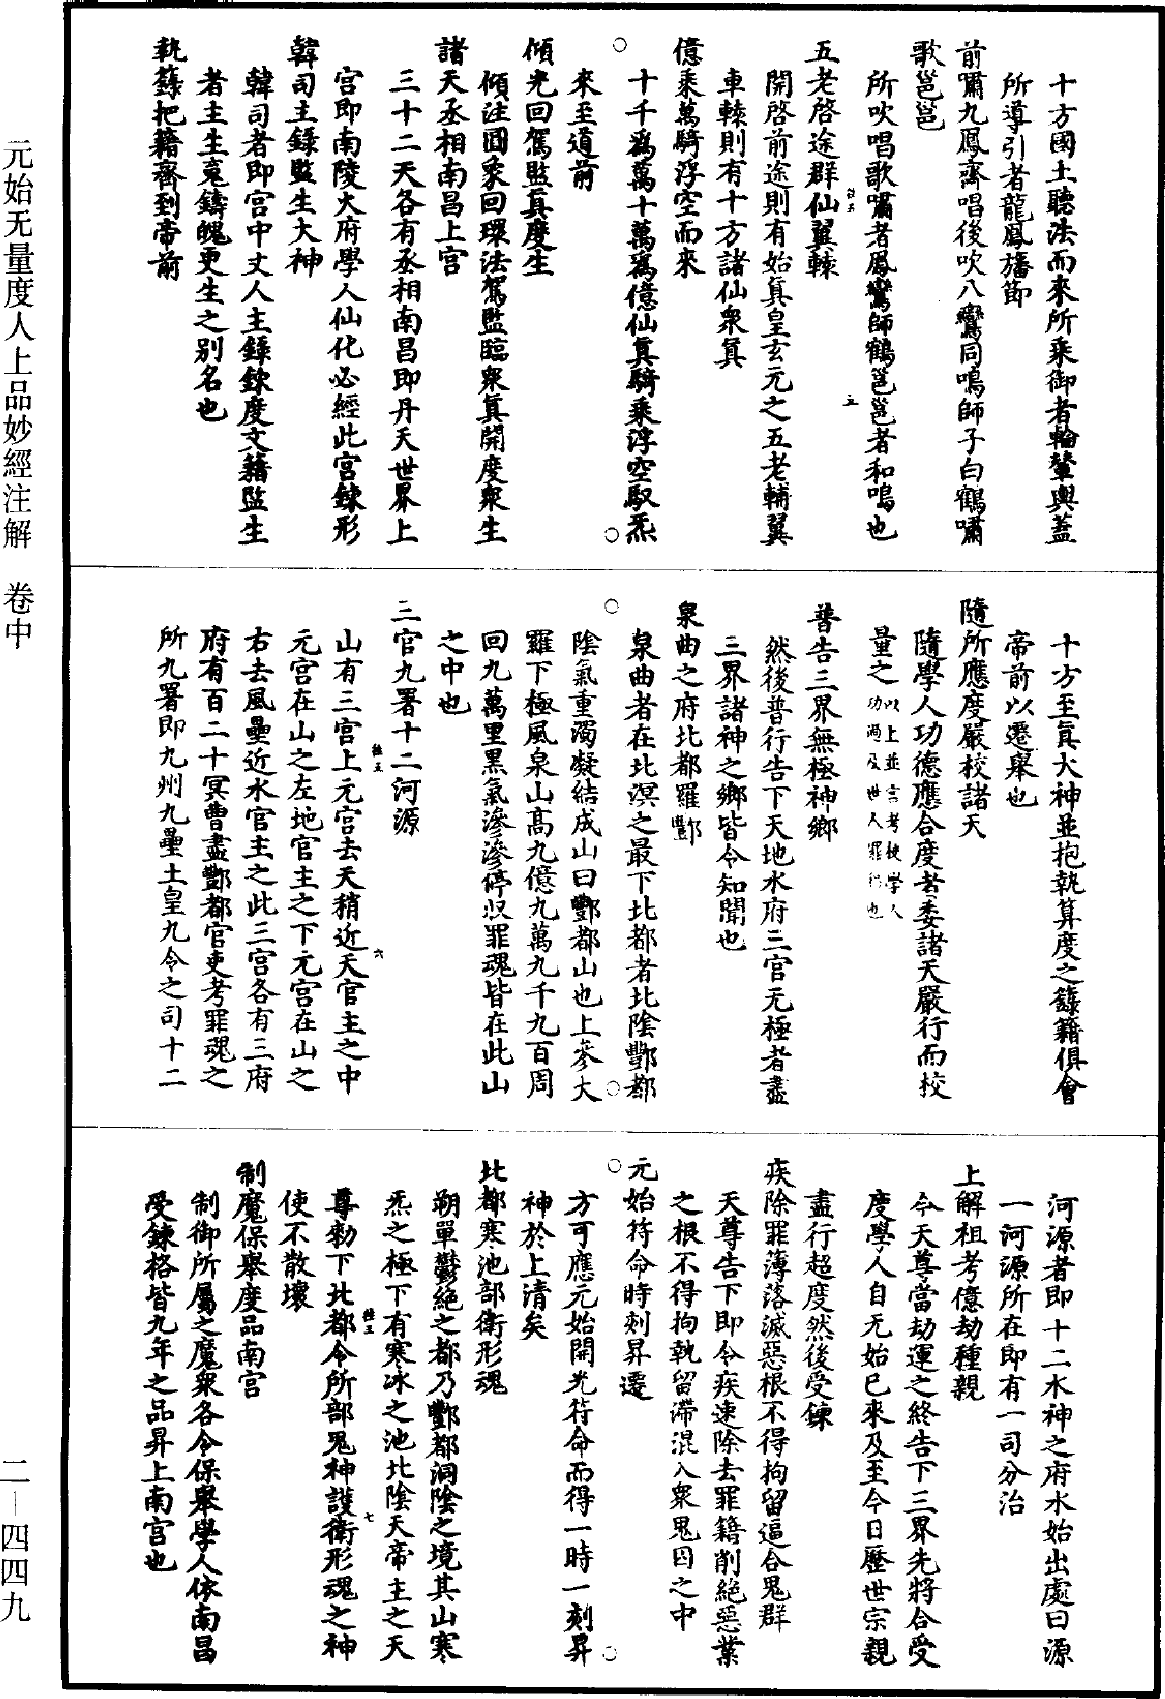 十方國土聽法而來所乘御者輪輦輿蓋
所導引者龍鳳旛節
前嘯九鳳齊唱後吹八鸞同鳴師子白鶴嘯
歌邕邕
所吹唱歌嘯者鳳鸞師鶴邕邕者和鳴也
五老啓途群仙翼轅
開啓前途則有始真皇玄元之五老輔翼
車轅則有十方諸仙衆真
億乘萬騎浮空而來
十千爲萬十萬爲億仙真騎乘浮空馭炁
來至道前
傾光回駕監真度生
傾注圓象回環法駕監臨衆真開度衆生
諸天丞相南昌上宮
三十二天各有丞相南昌即丹天世界上
宮即南陵火府學人仙化必經此宮鍊形
韓司主錄監生大神
韓司者即宮中丈人主錄欽度文籍監生
者主生竟鑄魄更生之別名也
執籙把籍齊到帝前
十方至真大神並抱執算度之籙籍俱會
帝前以遷舉也
隨所應度嚴校諸天
隨學人功德應合度者委諸天嚴行而校
量之以上並言考校學人功過及世人罪福也
普告三界無極神鄉
然後普行告下天地水府三官无極者盡
三界諸神之鄉皆令知聞也
泉曲之府北都羅酆
泉曲者在北溟之最下北都者北陰酆都
陰氣重濁凝結成山曰酆都山也上參大
羅下極風泉山高九億九萬九千九百周
回九萬里黑氣滲滲停収罪魂皆在此山
之中也
三官九署十二河源
山有三宮上元宮去天稍近天官主之中
元宮在山之左地官主之下元宮在山之
右去風壘近水官主之此三宮各有三府
府有百二十冥曹盡酆都官吏考罪魂之
所九署即九州九壘土皇九令之司十二
河源者即十二水神之府水始出處曰源
一河源所在即有一司分治
上解祖考億劫種親
今天尊當劫運之終告下三界先將合受
度學人自无始已來及至今日歷世宗親
盡行超度然後受鍊
疾除罪薄落滅惡根不得拘留逼合鬼群
天尊告下即令疾速除去罪籍削絕惡業
之根不得拘執留滯混入衆鬼囚之中
元始符命時刻昇遷
方可應元始開光符命而得一時一刻昇
神於上清矣
北都寒池部衛形魂
朔單鬱絕之都乃酆都洞陰之境其山寒
炁之極下有寒冰之池北陰天帝主之天
尊勑下北都令所部鬼神護衛形魂之神
使不散壞
制魔保舉度品南宮
制御所屬之魔衆各令保舉學人依南昌
受鍊格皆九年之品昇上南宮也
元始无量度人上品妙經注解　卷中
二—四四九